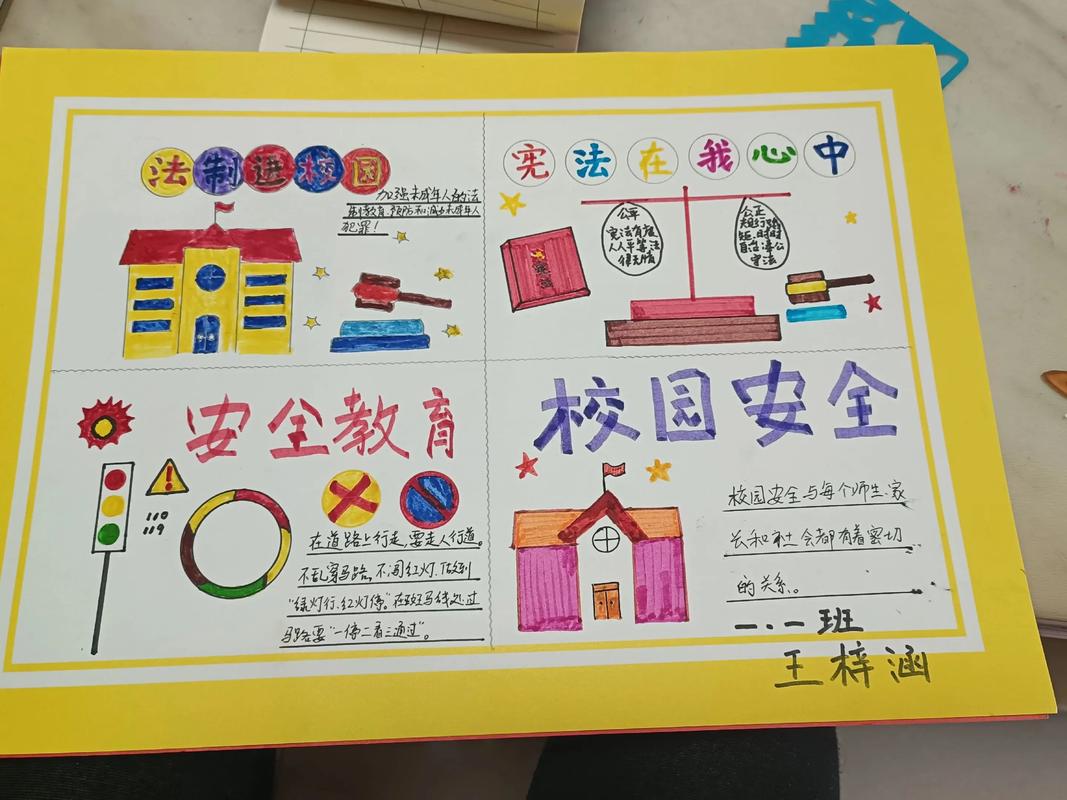 法制进校园
加强未成年人的法
律教育.预防和减少未成年人
犯罪！
宪法在我心中
公平
宪法有度
人人平等 法
律无情
公正
规行
距.时时
自治.事公
守法
安全教育
110
119
在道路上行走,要走人行道。
不乱穿马路,不闯红灯.做到
“绿灯行.红灯停。”在斑马线处.过
马路要“一停二看三通过”。
校园安全
校园安全与每个师生.家
长和社会都有着密切
的关系。
一.一班
王梓涵